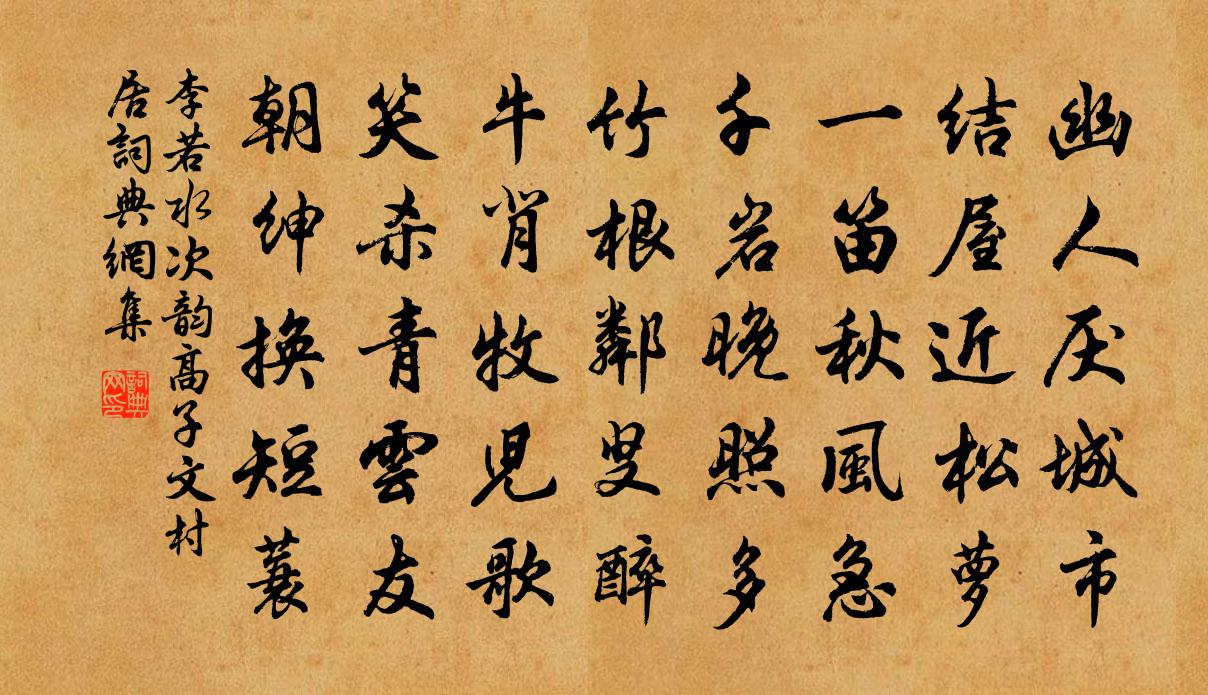 幽人厌城市
结屋近松萝
一笛秋風急
千岩晚照多
竹根鄰叟醉
牛背牧児歌
笑杀青雲友
朝绅换短蓑
李若水次韵高子文村
居詞典網集
詞典网印